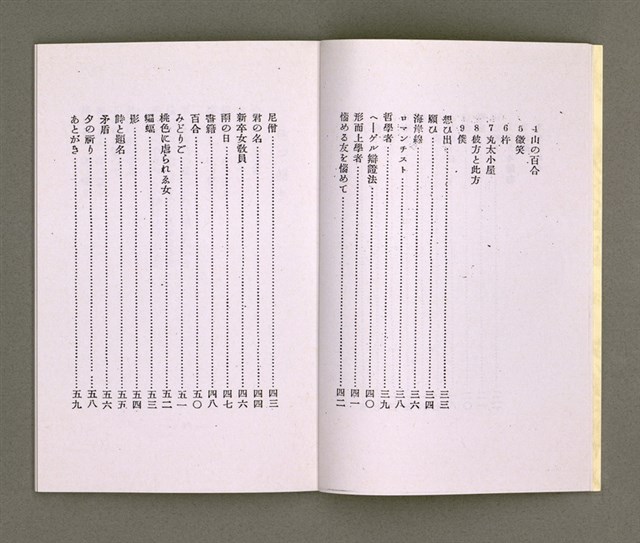 4 山の百合
5 微笑
6 杵
7 丸太小屋
8 彼方と此方
9 僕
想ひ出……三三
顧ひ……三四
海岸線……三六
ロマンチスト……三八
哲學者……三九
ヘーゲル辯證法……四〇
形而上學者……四一
惱める友を惱めて……四二
尼僧……四三
君の名……四四
新卒女敎員……四六
雨の日……四七
書籍……四八
百合……五〇
みどりご……五一
桃色に虐られゑ女……五二
蝙蝠……五三
影……五四
詩と題名……五五
矛盾……五六
夕の祈り……五八
あとがき……五九